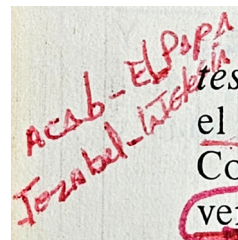 Acab - El Papa
Jezabel - La Iglesia
tes
el
Co
ve